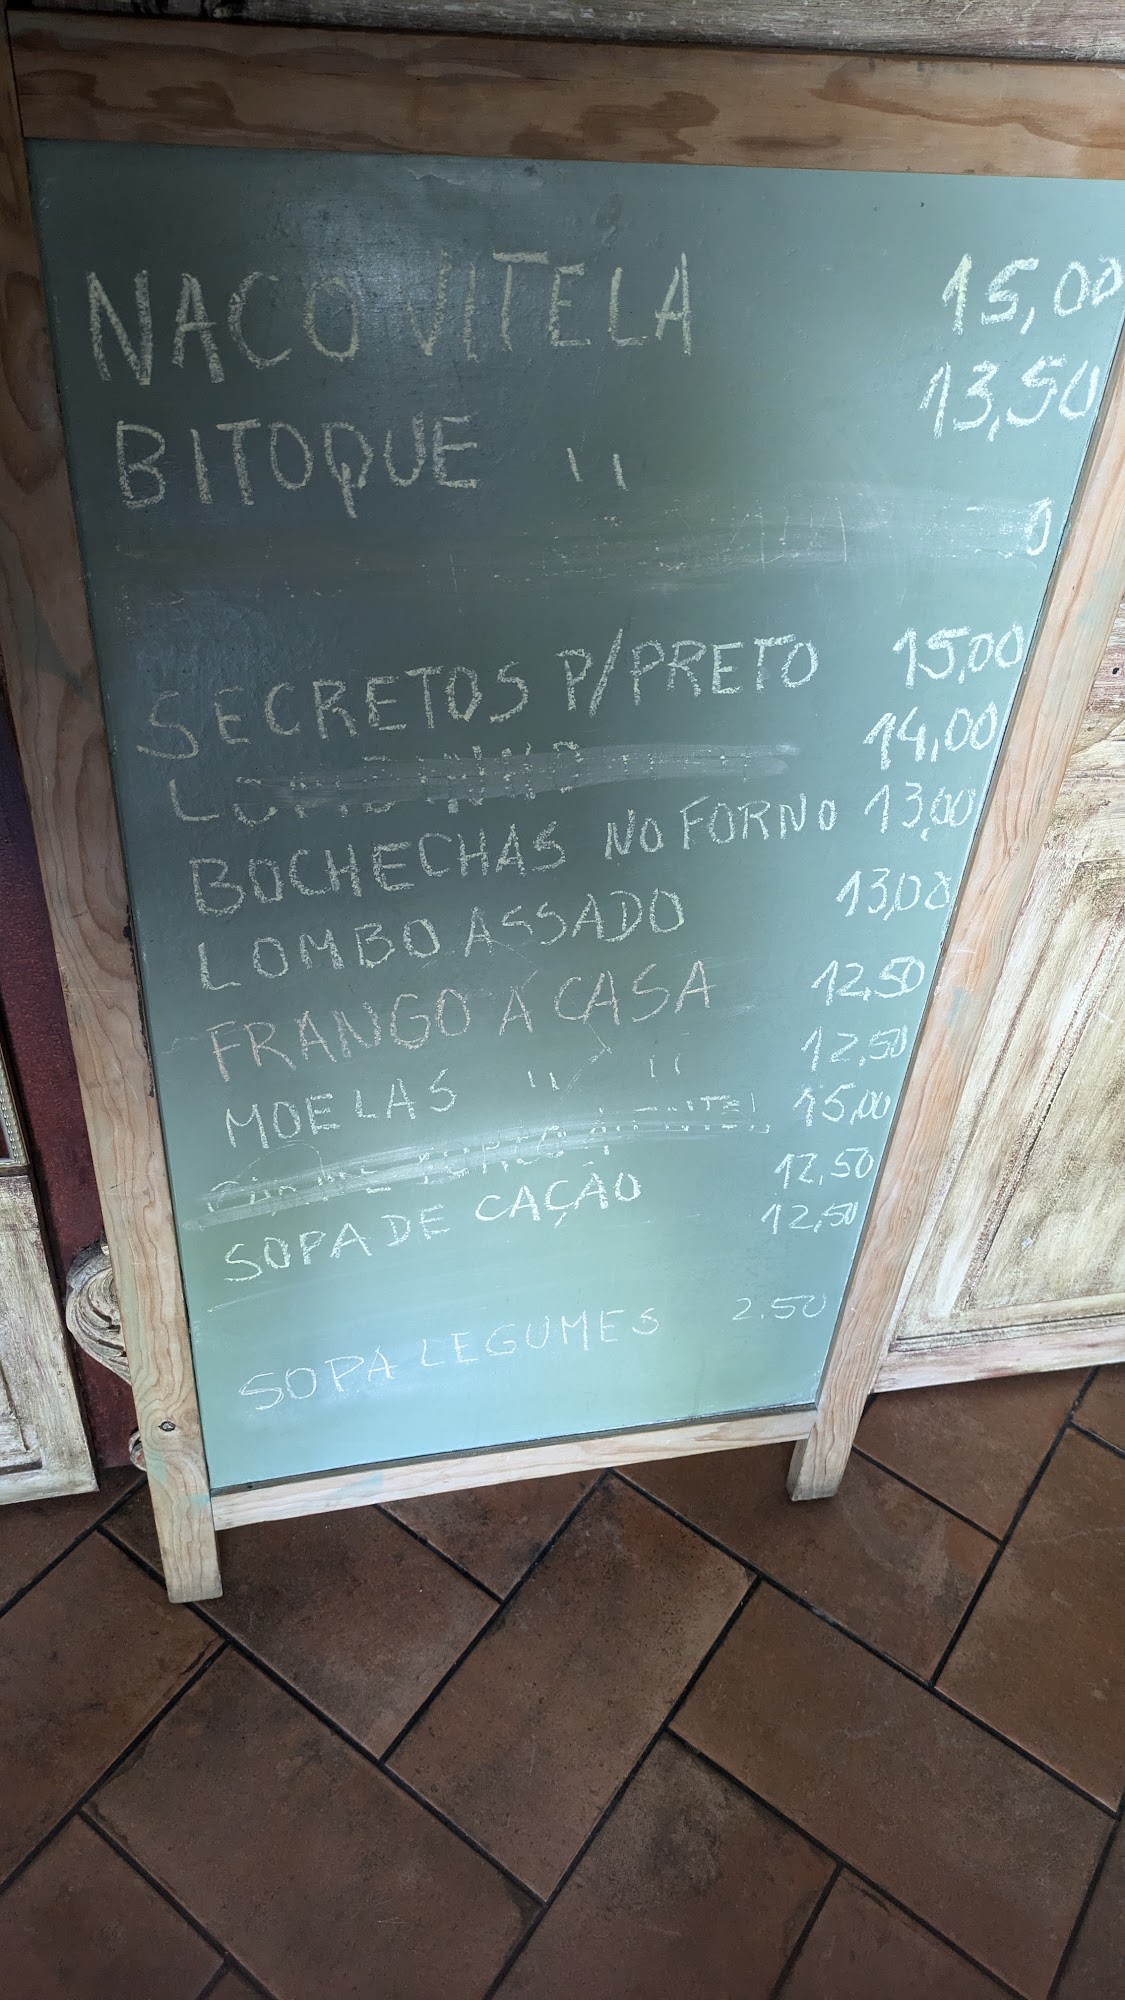 NACO VITELA 15,00
BITOQUE " 13,50
0
SECRETOS P/PRETO 15,00
14,00
BOCHECHAS NO FORNO 13,00
LOMBO ASSADO 13,00
FRANGO Á CASA 12,50
MOELAS " " 12,50
15,00
SOPA DE CAÇÃO 12,50
12,50
SOPA LEGUMES 2.50